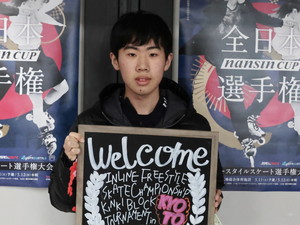 全日本
nansin CUP
選手権
スケート選手権大会
全日本
nansin CUP
選手権
スタイルスケート選手権大会
Welcome
INLINE FREESTYLE
SKATE CHAMPIONSHIP
KINKI BLOCK
TOURNAMENT In
KYO
TO